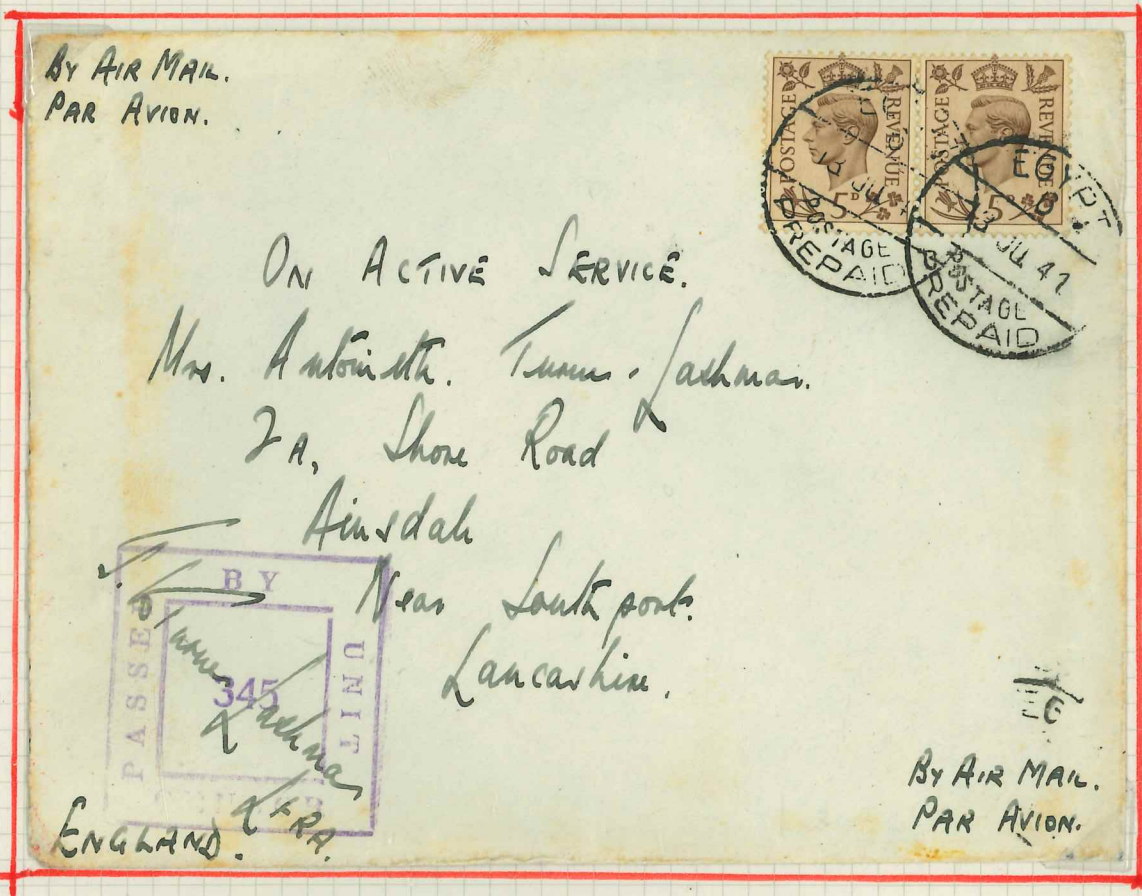 BY AIR MAIL.
PAR AVION.
POSTAGE REVENUE
5D
POSTAGE REVENUE
5D
13 JU
POSTAGE
PREPAID
EGYPT
13 JU 41
POSTAGE
PREPAID
ON ACTIVE SERVICE.
Mrs. Antoinette. Turner. Lashmar.
2A, Shore Road
Ainsdale
Near Southport.
Lancashire.
ENGLAND.
PASSED BY UNIT
345
Turner Lashmar
Lt RA.
BY AIR MAIL.
PAR AVION.